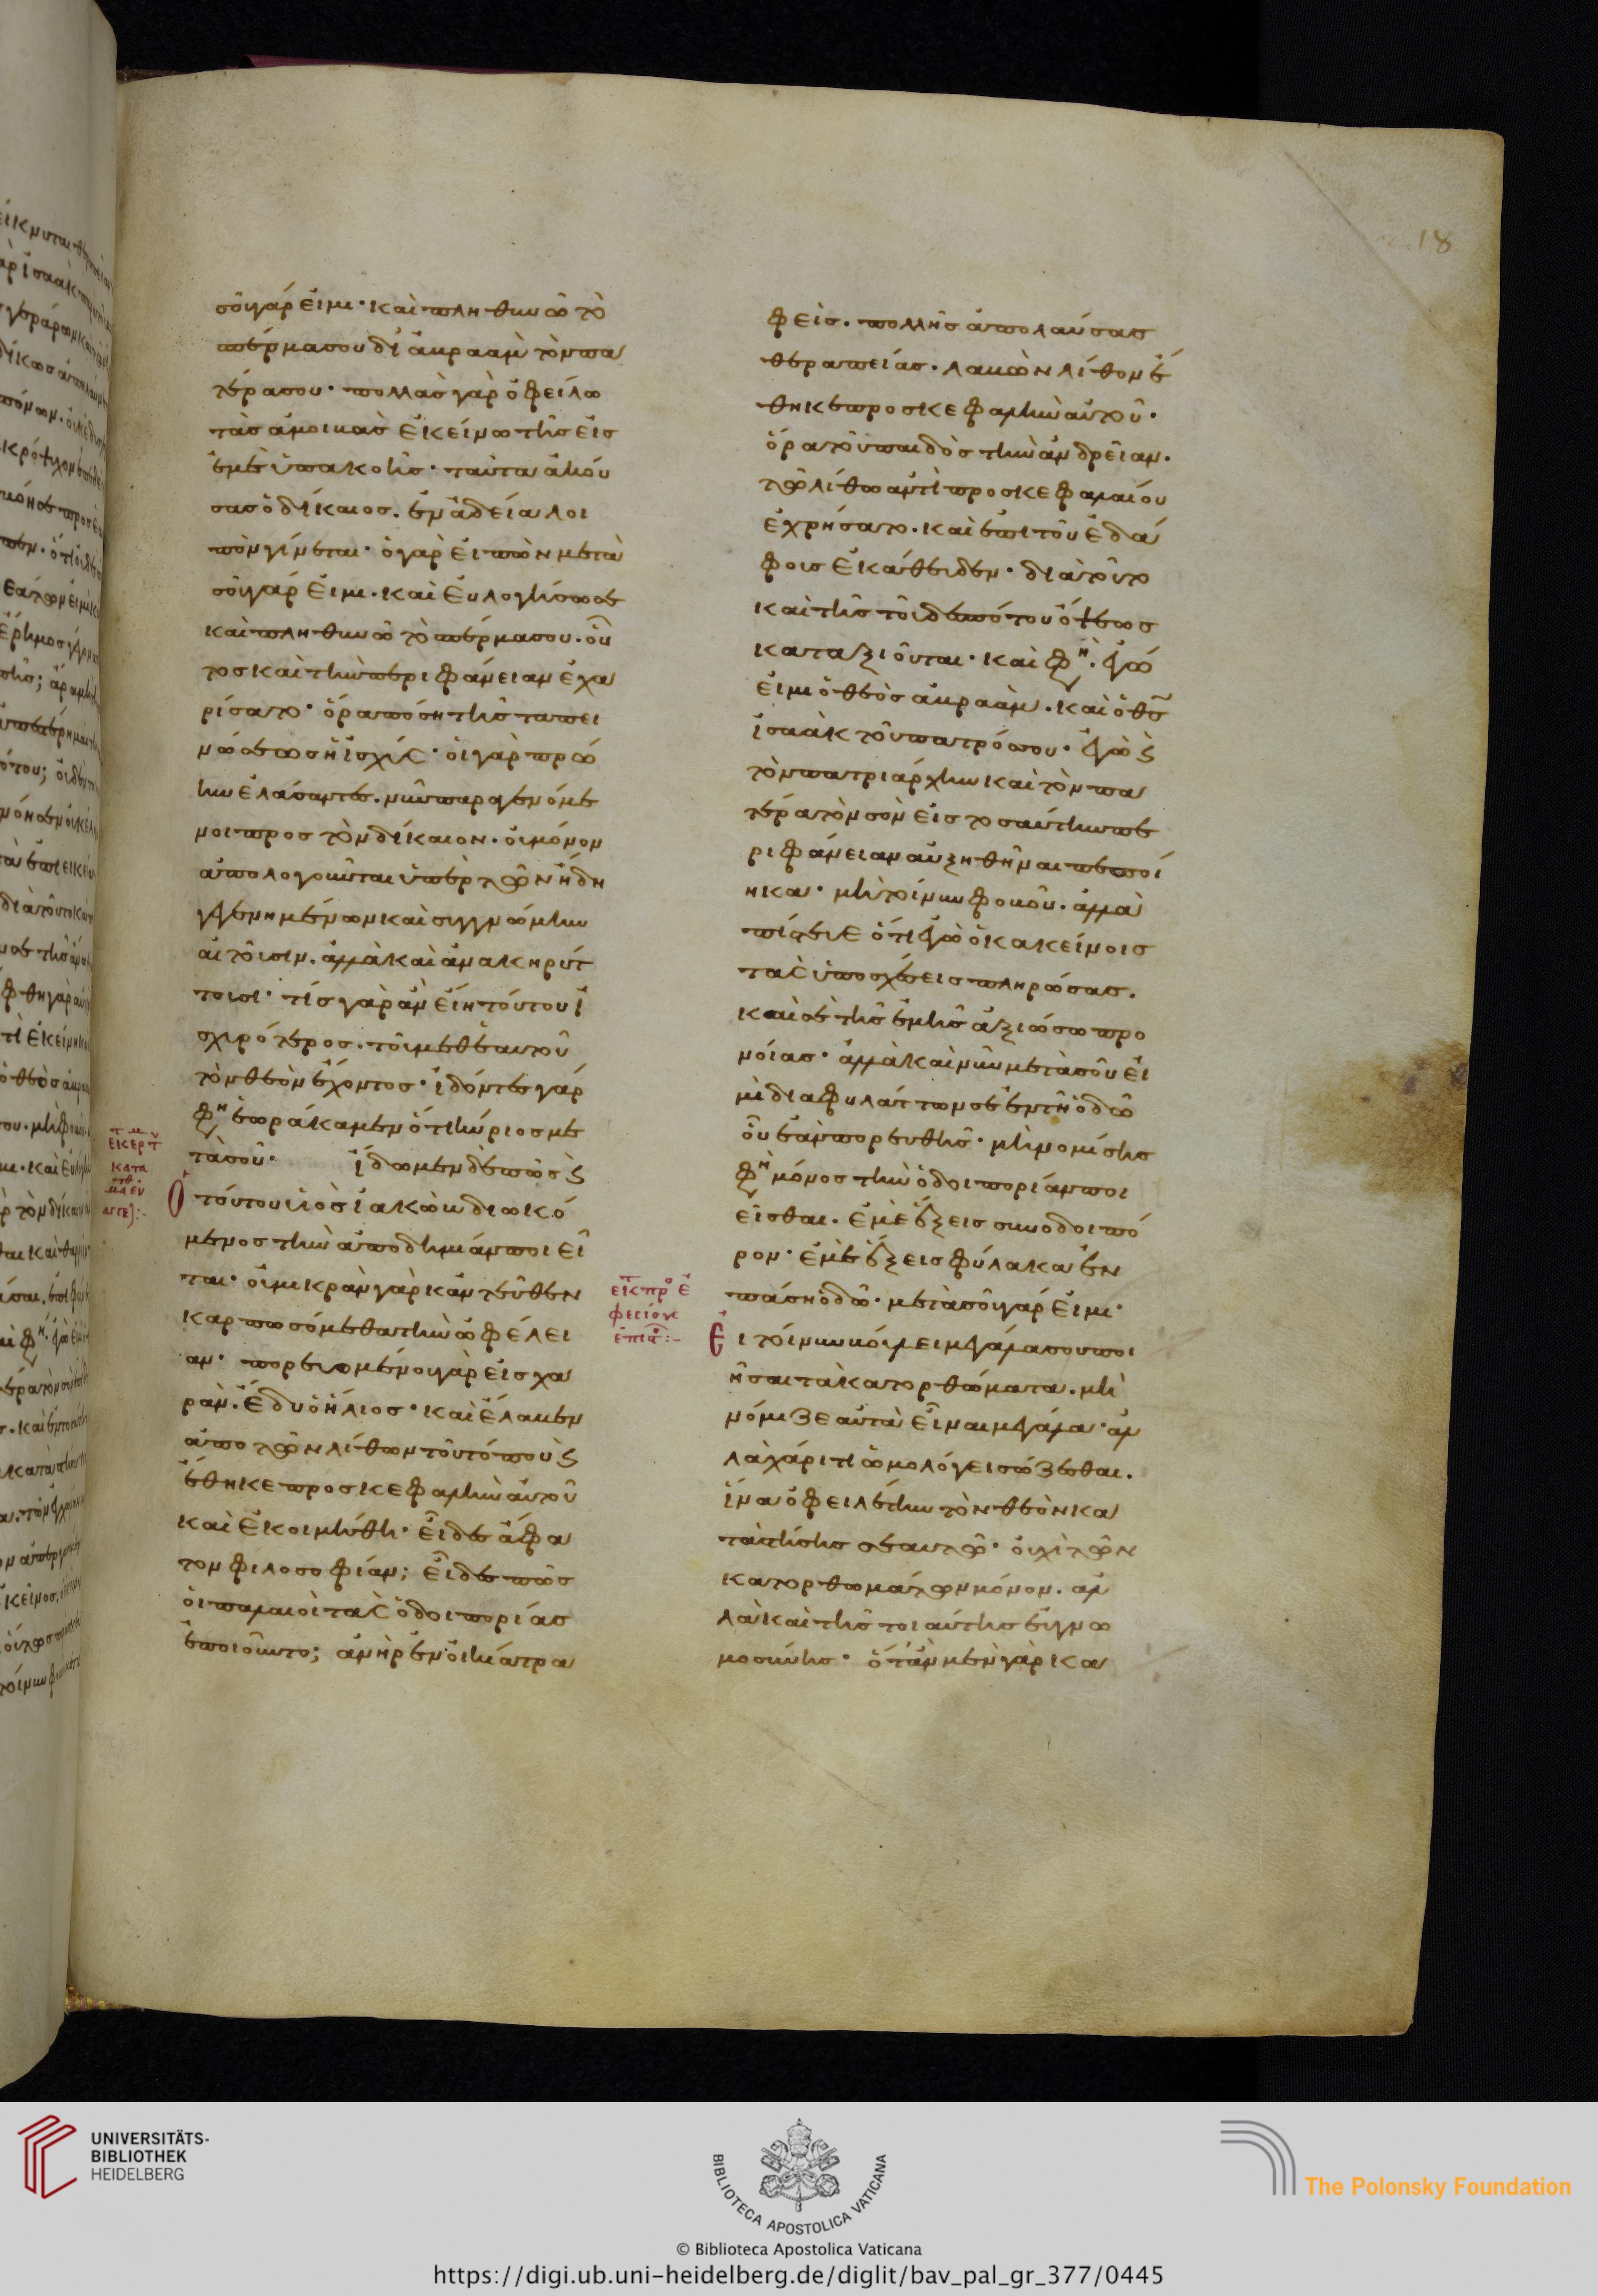 18
σοῦ γάρ εἰμι· καὶ πληθυνῶ τὸ
σπέρμα σου δι' ἀβραὰμ τὸν πα
τέρα σου· πολλὰς γὰρ ὀφείλω
τὰς ἀμοιβὰς ἐκείνω τῆς εἰς
ἐμὲ ὑπακοῆς· ταῦτα ἀκού
σας ὁ δίκαιος. ἐν ἀδεία λοι
πὸν γίνεται· ὁ γὰρ εἰπὼν μετὰ
σοῦ γάρ εἰμι. καὶ εὐλογήσω σε
καὶ πληθυνῶ τὸ σπέρμα σου. οὗ
τος καὶ τὴν περιφάνειαν ἐχα
ρίσατο· ὅρα πόση τῆς ταπει
νώσεως ἡ ἰσχύς· οἱ γὰρ πρώ
ην ἐλάσαντες. νῦν παραγενόμε
νοι προς τὸν δίκαιον. οὐ μόνον
ἀπολογοῦνται ὑπὲρ τῶν ἤδη
γεγενημένων καὶ συγγνώμην
αἰτοῦσιν. ἀλλὰ καὶ ἀνακηρύτ
τουσι· τίς γὰρ ἂν εἴη τούτου ἰ
σχυρότερος. τοῦ μεθ' ἑαυτοῦ
τὸν θεὸν ἔχοντος· ἰδόντες γάρ
φη ἑωράκαμεν ὅτι ἦν κύριος με
τὰ σοῦ· ἴδωμεν δὲ πῶς καὶ
Ο τούτου υἱὸς ἰακὼβ διωκό
μενος τὴν ἀποδημίαν ποιεῖ
ται· οὐ μικρὰν γὰρ κἀντεῦθεν
καρπωσόμεθα τὴν ὠφέλει
αν· πορευομένου γὰρ εἰς χα
ράν. ἔδυ ὁ ἥλιος· καὶ ἔλαβεν
ἀπο τῶν λίθων τοῦ τόπου καὶ
ἔθηκε προς κεφαλὴν αὐτοῦ
καὶ ἐκοιμήθη· εἶδες ἄφα
τον φιλοσοφίαν; εἶδες πῶς
οἱ παλαιοὶ τὰς ὁδοιπορίας
ἐποιοῦντο; ἀνὴρ ἐν οἰκία τρα
φεὶς. πολλῆς ἀπολαύσας
θεραπείας. λαβὼν λίθον ἔ
θηκε προς κεφαλὴν αὐτοῦ·
ὅρα τοῦ παιδὸς τὴν ἀνδρείαν.
τῶ λίθω ἀντὶ προσκεφαλαίου
ἐχρήσατο. καὶ ἐπι τοῦ ἐδά
φους ἐκάθευδεν· διὰ τοῦτο
καὶ τῆς τοῦ δεσπότου ὄψεως
καταξιοῦται· καὶ φη. ἐγώ
εἰμι ὁ θεὸς ἀβραὰμ. καὶ ὁ θς
ἰσαὰκ τοῦ πατρός σου· ἐγὼ καὶ
τὸν πατριάρχην καὶ τὸν πα
τέρα τὸν σὸν εἰς τοσαύτην πε
ριφάνειαν αὐξηθῆναι πεποί
ηκα· μὴ τοίνυν φοβοῦ. ἀλλὰ
πίστευε ὅτι ἐγὼ ὁ κακείνοις
τὰς ὑποσχέσεις πληρώσας.
καὶ σὲ τῆς ἐμῆς ἀξιώσω προ
νοίας· ἀλλὰ καὶ νῦν μετὰ σοῦ εἰ
μὶ διαφυλάττων σε ἐν τῆ ὁδῶ
οὗ ἐὰν πορευθῆς· μὴ νομίσης
φη μόνος τὴν ὁδοιπορίαν ποι
εῖσθαι. ἐμὲ ἕξεις συνοδοιπό
ρον· ἐμὲ ἕξεις φύλακα ἐν
πάση ὁδῶ· μετὰ σοῦ γάρ εἰμι·
Ε ι τοίνυν βούλει μεγάλα σου ποι
ῆσαι τὰ κατορθώματα. μὴ
νόμιζε αὐτὰ εἶναι μεγάλα· ἀλ
λὰ χάριτι ὡμολόγει σώζεσθαι.
ἵνα ὀφειλέτην τὸν θεὸν κα
ταστήσης σεαυτῶ· οὐχὶ τῶν
κατορθωμάτων μόνον. ἀλ
λὰ καὶ τῆς τοιαύτης εὐγνω
μοσύνης· ὅταν μὲν γὰρ κα
UNIVERSITÄTS-
BIBLIOTHEK
HEIDELBERG
BIBLIOTECA APOSTOLICA VATICANA
The Polonsky Foundation
© Biblioteca Apostolica Vaticana
https://digi.ub.uni-heidelberg.de/diglit/bav_pal_gr_377/0445